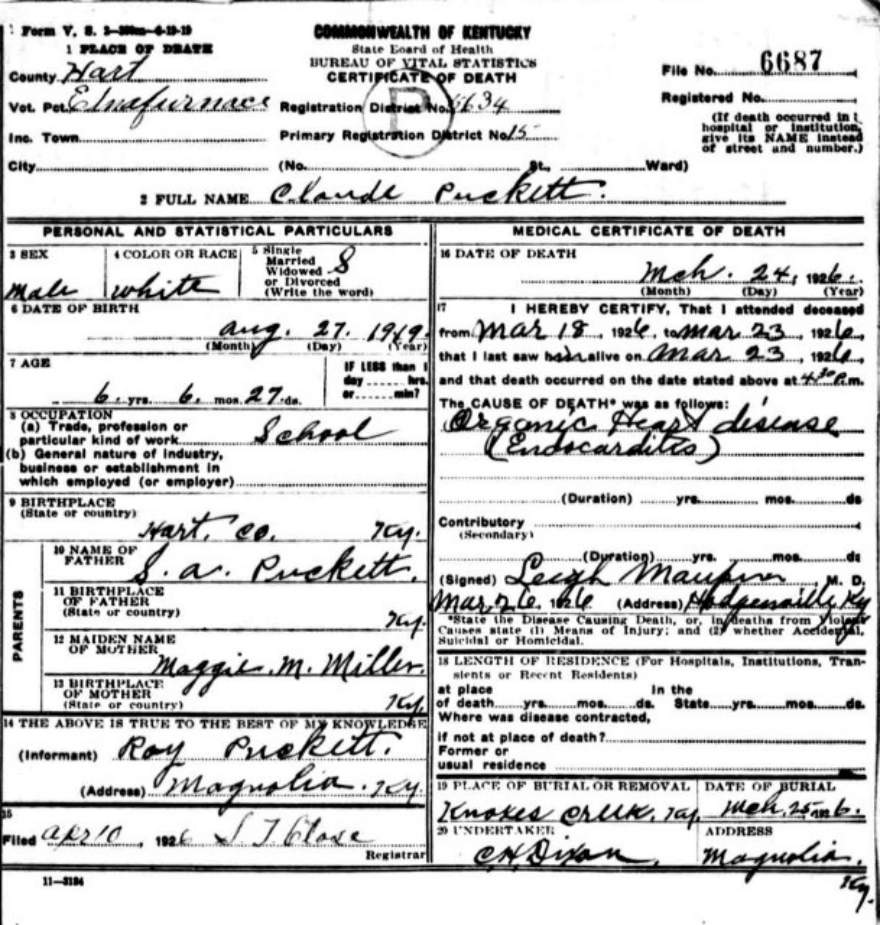 Form V. S. 4-19-19
COMMONWEALTH OF KENTUCKY
State Board of Health
BUREAU OF VITAL STATISTICS
CERTIFICATE OF DEATH
1 PLACE OF DEATH
County Hart
File No. 6687
Vot. Pct. Elnafurnace Registration District No. 6634
Registered No.
Inc. Town Primary Registration District No. 15
(If death occurred in
hospital or institution,
give its NAME instead
of street and number.)
City (No. St., Ward)
2 FULL NAME Claude Puckett.
PERSONAL AND STATISTICAL PARTICULARS
3 SEX
male
4 COLOR OR RACE
white
5 Single
Married
Widowed
or Divorced
(Write the word)
S
6 DATE OF BIRTH
Aug. 27. 1919.
(Month) (Day) (Year)
7 AGE
6. yrs. 6. mos. 27. ds.
IF LESS than 1
day hrs.
or min?
8 OCCUPATION
(a) Trade, profession or
particular kind of work School
(b) General nature of industry,
business or establishment in
which employed (or employer)
9 BIRTHPLACE
(State or country)
Hart. Co. Ky.
PARENTS
10 NAME OF
FATHER
S. A. Puckett.
11 BIRTHPLACE
OF FATHER
(State or country)
Ky.
12 MAIDEN NAME
OF MOTHER
Maggie. M. Miller.
13 BIRTHPLACE
OF MOTHER
(State or country)
Ky.
14 THE ABOVE IS TRUE TO THE BEST OF MY KNOWLEDGE
(Informant) Roy Puckett.
(Address) Magnolia. Ky.
15
Filed Apr 10, 1926 S T Close
Registrar
11—3184
MEDICAL CERTIFICATE OF DEATH
16 DATE OF DEATH
Mch. 24, 1926.
(Month) (Day) (Year)
17 I HEREBY CERTIFY, That I attended deceased
from Mar 18, 1926, to Mar 23, 1926,
that I last saw him alive on Mar 23, 1926
and that death occurred on the date stated above at 4 30 P.m.
The CAUSE OF DEATH* was as follows:
Organic Heart disease
(Endocarditis)
(Duration) yrs. mos. ds
Contributory
(Secondary)
(Duration) yrs. mos. ds
(Signed) Leigh Maupin M. D.
Mar 26, 1926 (Address) Hodgenville Ky
*State the Disease Causing Death, or, in deaths from Violent
Causes state (1) Means of Injury; and (2) whether Accidental,
Suicidal or Homicidal.
18 LENGTH OF RESIDENCE (For Hospitals, Institutions, Tran-
sients or Recent Residents)
at place In the
of death yrs. mos. ds. State yrs. mos. ds.
Where was disease contracted,
if not at place of death?
Former or
usual residence
19 PLACE OF BURIAL OR REMOVAL
Knoxes Creek, Ky
DATE OF BURIAL
Mch. 25 1926.
20 UNDERTAKER
C H Dixon.
ADDRESS
Magnolia.
Ky.